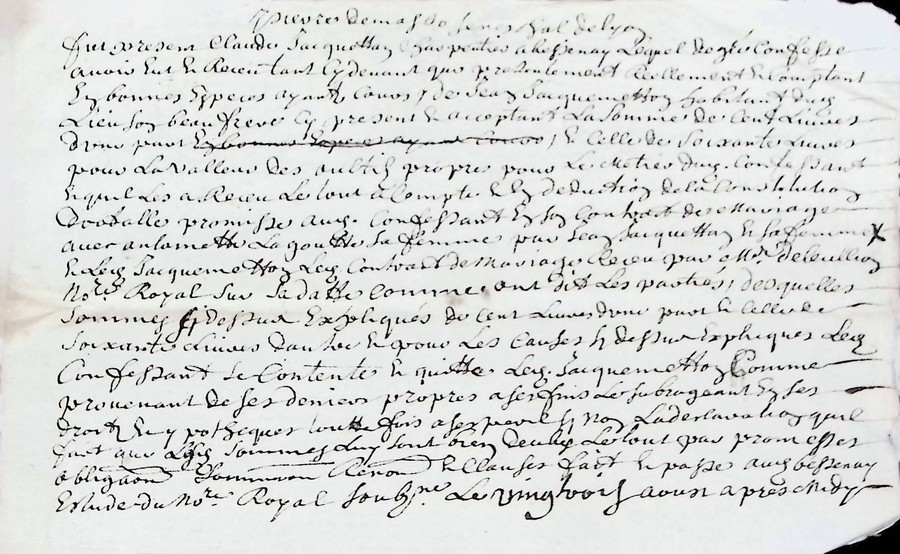 pierre de masso seneschal de lyon
fut present Claude Jacquetton Charpentier a bessenay Lequel de gré Confesse
avoir Eut & Receu tant Cydevant que presentement Reellement & Comptant
En bonnes Especes ayant Cours de Jean Jacquemetton habitant dud.
Lieu son beau frere Cy present & acceptant La somme de Cent Livres
dune part En bonnes Especes ayant Cours & Celle de Soixante Livres
pour La valleur des outils propres pour Le Metier dud. Confessant
Lequel Les a Receu Le tout a Compte & En deduction de La Constitution
dotalle promise aud. Confessant En son Contract de Mariage
avec antoinette La goutte sa femme par Jean Jacquetton & sa femme X
& Led. Jacquemetton Led. Contract de Mariage Receu par Me.
No.re Royal sur sa datte Comme ont dit Les parties, desquelles
Sommes Cy dessus Expliqués de Cent Livres dune part & Celle de
Soixante Livres dautre & pour Les Causes Cy dessus Expliques Led.
Confessant se Contente & quitte Led. Jacquemetton Comme
provenant de ses deniers propres a ses fins Le subrogeant En ses
droits & ypotheques toutte fois a ses perils Cy Non La declaration quil
fait que Lesd. Sommes Luy sont bien deubes Le tout par promesses
obligaon Renon & Clauses fait & passe aud. bessenay
Estude du No.re Royal Soubg.ne Le vingtrois aoust apres Midy